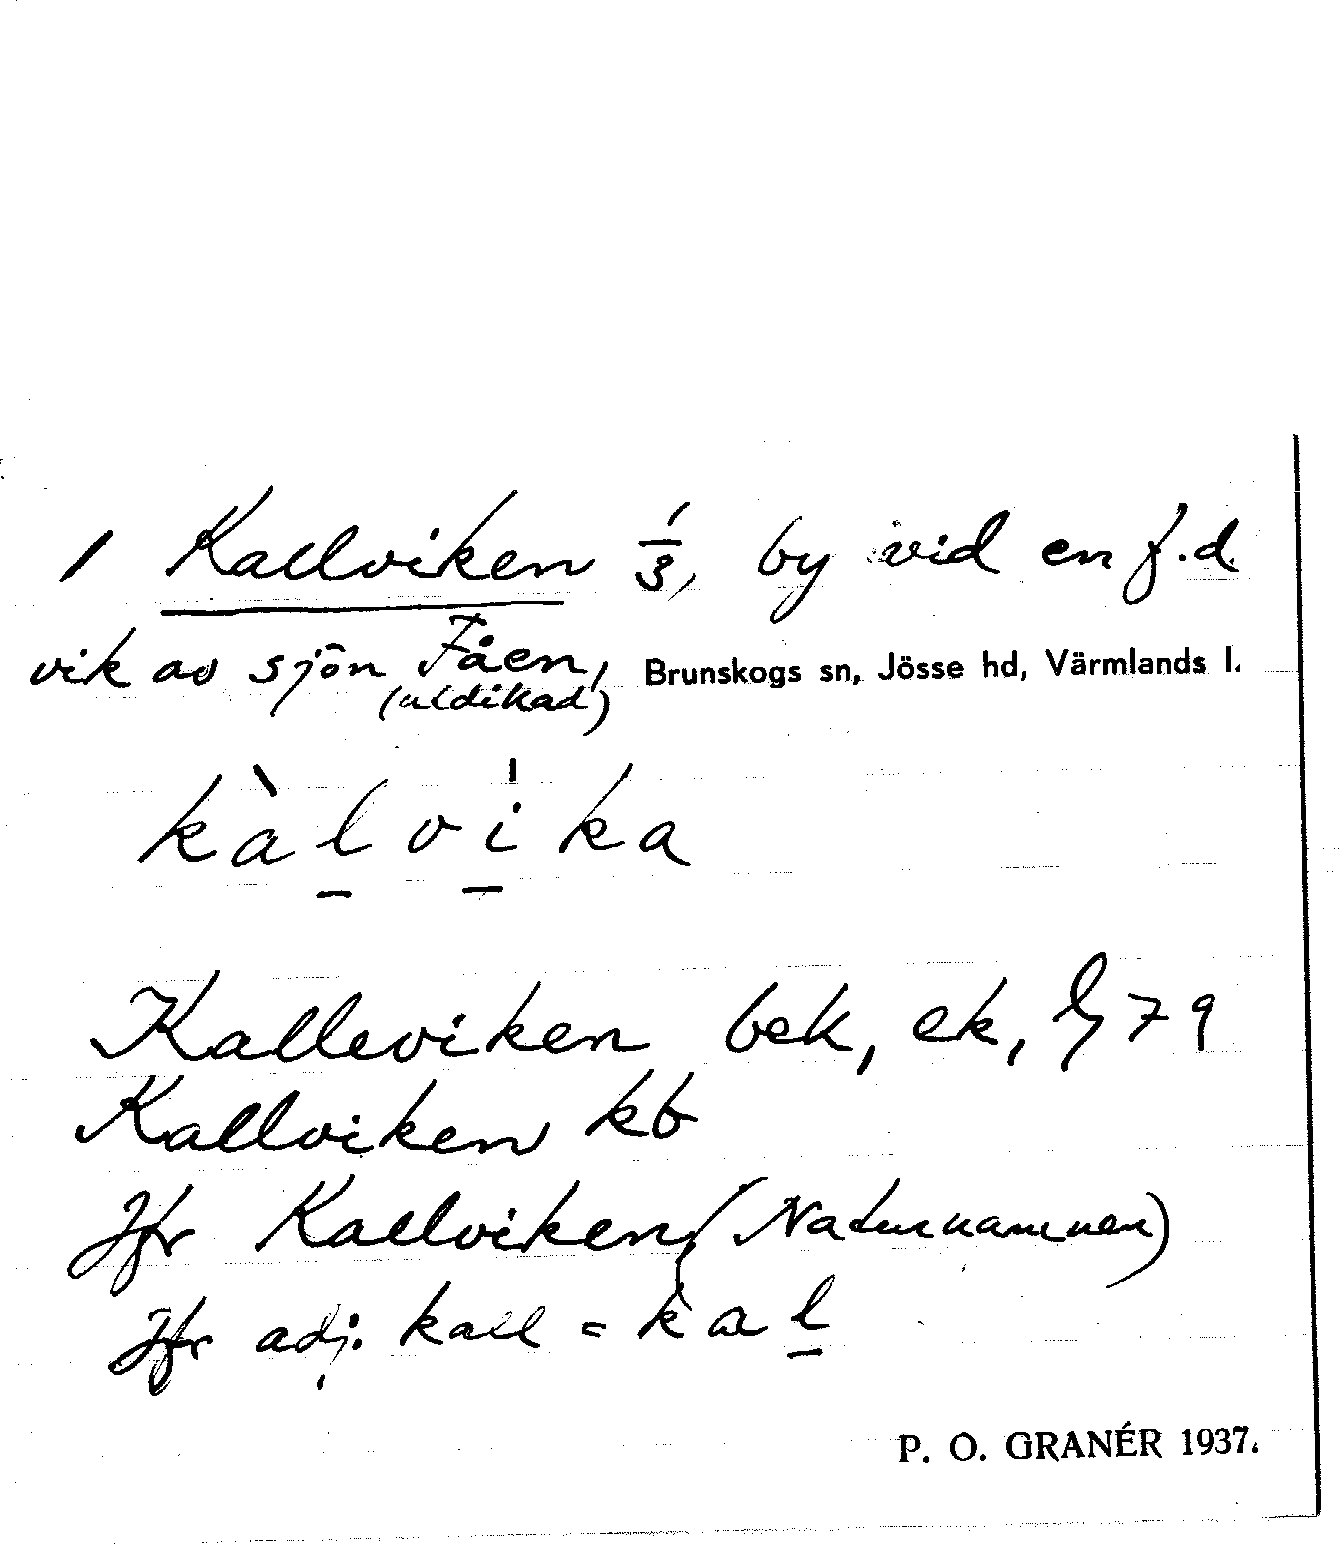 1 Kallviken 1/3, by vid en f.d.
vik av sjön Fåen, Brunskogs sn, Jösse hd, Värmlands l.
(utdikad)
kàlvika
Kalleviken bek, ek, G 79
Kallviken kb
Jfr Kallviken (Naturnamnen)
Jfr adj. kall = kal
P. O. GRANÉR 1937.